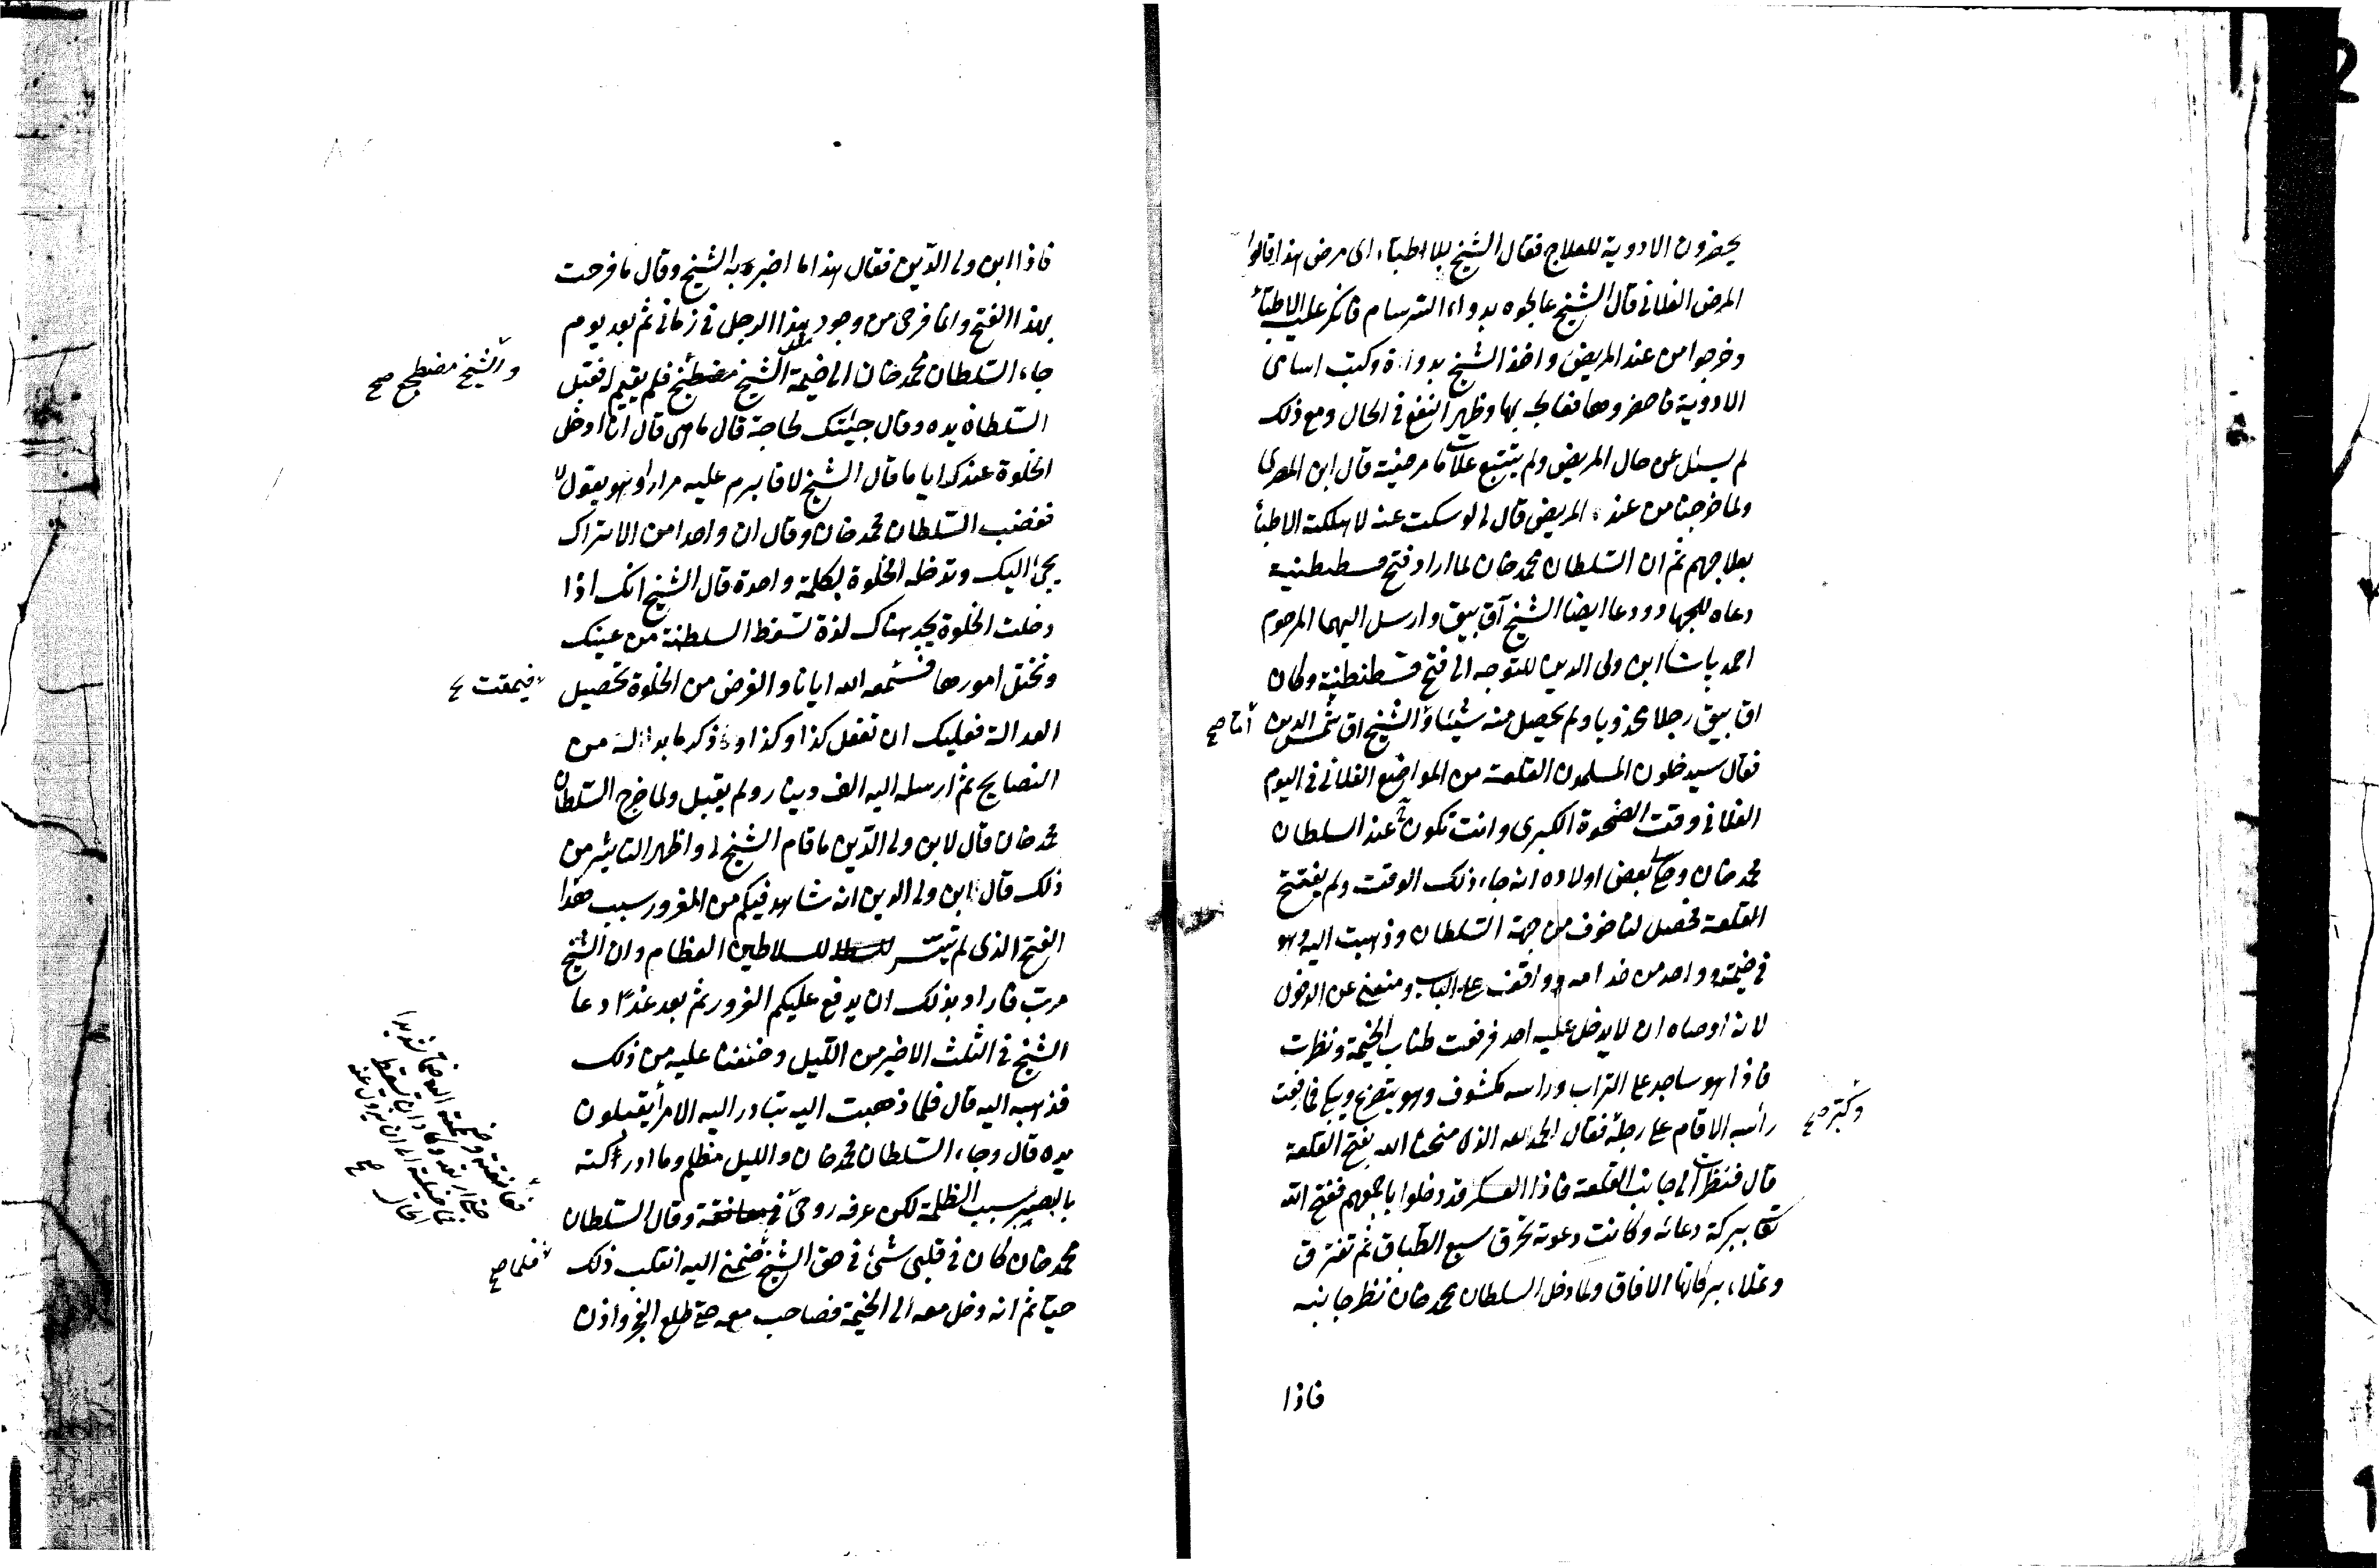 يحضرون الادوية للعلاج فقال الشيخ للاطباء اى مرض هذا قالوا
المرض الفلانى قال الشيخ عالجوه بدواء السرسام فانكر عليه الاطباء
وخرجوا من عند المريض واخذ الشيخ بدواة وكتب اسامى
الادوية فاحضروها فعالجه بها وظهر النفع فى الحال ومع ذلك
لم يسئل عن حال المريض ولم يتتبع علامات مرضه قال ابن المصرى
ولما خرجنا من عند المريض قال لى لو سكت عنه لاهلكته الاطباء
بعلاجهم ثم ان السلطان محمد خان لما اراد فتح قسطنطنية
دعاه للجهاد ودعا ايضا الشيخ آق بيق وارسل اليهما المرحوم
احمد پاشا ابن ولى الدين للتوجه الى فتح قسطنطنية وكان
اق بيق رجلا مجذوبا ولم يحصل منه شيئا والشيخ اق شمس الدين
اما صح
فقال سيدخلون المسلمون القلعة من المواضع الفلانى فى اليوم
الفلانى وقت الضحوة الكبرى وانت تكون عند السلطان
محمد خان وحكى بعض اولاده انه جاء ذلك الوقت ولم يفتح
القلعة فحصل لنا خوف من جهة السلطان وذهبت اليه وهو
فى خيمته وواحد من خدامه واقف على الباب ومنعنى عن الدخول
لانه اوصاه ان لا يدخل عليه احد فرفعت طناب الخيمة ونظرت
فاذا هو ساجد على التراب وراسه مكشوف وهو يتضرع ويبكى فما رفعت
رأسه الا قام على رجله فقال الحمد لله الذى منحنا الله بفتح القلعة
وكبر صح
قال فنظرت الى جانب القلعة فاذا العسكر قد دخلوا باجمعهم ففتح الله
تعالى ببركة دعائه وكانت دعوته تخرق سبع الطباق ثم تفترق
وتملاء ببركاتها الافاق ولما دخل السلطان محمد خان نظر جانبه
فاذا
فاذا ابن ولى الدين فقال هذا ما اخبر به الشيخ وقال ما فرحت
بهذا الفتح وانما فرحى من وجود هذا الرجل فى زمانى ثم بعد يوم
جاء السلطان محمد خان الى خيمة الشيخ مضطجع فلم يقيم له فقبل
والشيخ مضطجع صح
السلطان يده وقال جئتك لحاجة قال ما هى قال انا ادخل
الخلوة عندك اياما قال الشيخ لا فابرم عليه مرارا وهو يقول لا
فغضب السلطان محمد خان وقال ان واحدا من الاتراك
يجئ اليك وتدخله الخلوة بكلمة واحدة قال الشيخ انك اذا
دخلت الخلوة تجد هناك لذة تسقط السلطنة من عينك
وتختل امورها الله ايانا والغرض من الخلوة تحصيل
فيمقت
العدالة فعليك ان تفعل كذا وكذا وذكر ما بدا له من
النصايح ثم ارسله اليه الف دينار ولم يقبل ولما خرج السلطان
محمد خان قال لابن ولى الدين ما قام الشيخ لى واظهر التأثير من
ذلك قال ابن ولى الدين انه شاهد فيكم من الغرور سبب هذا
الفتح الذى لم يتيسر للسلاطين العظام وان الشيخ
مرب فاراد بذلك ان يدفع عليكم الغرور ثم بعد غدا دعا
الشيخ فى الثلث الاخير من الليل وخفنا عليه من ذلك
فذهب اليه قال فلما ذهبت اليه تبادر اليه الامراء يقبلون
يده قال وجاء السلطان محمد خان والليل مظلم وما ادركته
بالبصر بسبب الظلمة لكن عرفه روحى وقال السلطان
محمد خان كان فى قلبى شئ فى حق الشيخ ضمنى اليه انقلب ذلك
فلما صح
حبا ثم انه دخل معه الى الخيمة فصاحب معه حتى طلع الفجر واذن